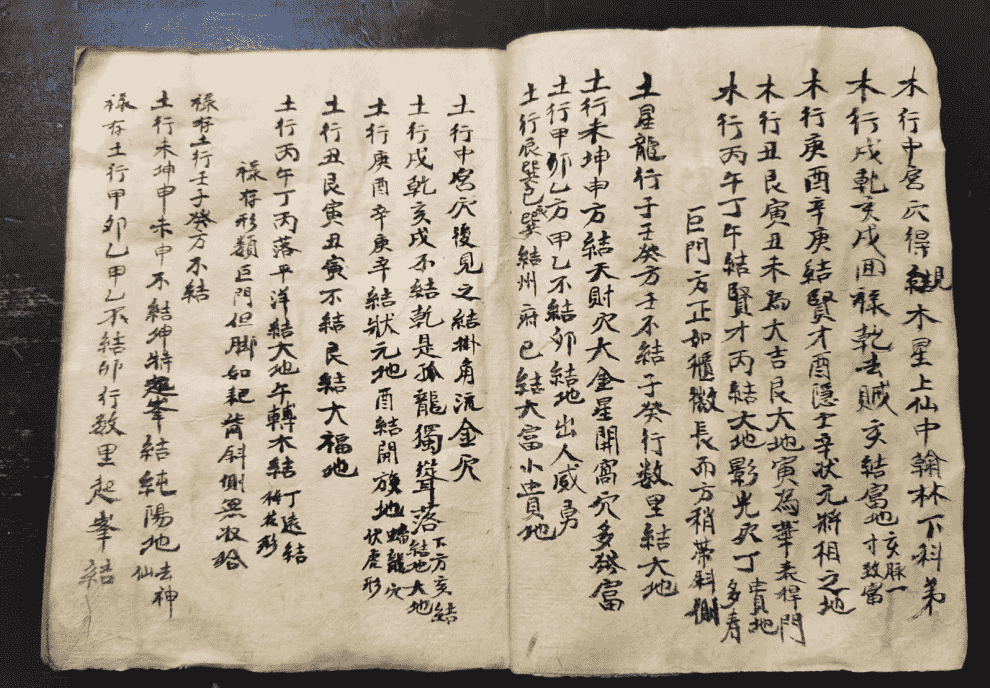 木行中宮穴得親木星上仙中翰林下科弟
木行戌乾亥戌回祿乾去賊亥結富地亥脉一寸致富
木行庚酉辛庚結賢才酉隱士辛狀元將相之地
木行丑艮寅丑未為大吉艮大地寅為華表捍門
木行丙午丁午結賢才丙結大地影光穴丁貴地多壽
巨門方正如櫃微長而方稍帶斜側
土星龍行子壬癸方壬不結子癸行数里結大地
土行未坤申方結天財穴大金星開窩穴多發富
土行甲卯乙方甲乙不結卯結地出人威勇
土行辰巽巳巽結州府巳結大富小貴地
土行中宮穴後見之結掛角流金穴
土行戌乾亥戌不結乾是孤龍獨聳落下方亥結結地大地
土行庚酉辛庚辛結狀元地酉結開旗地蟠龍穴伏虎形
土行丑艮寅丑寅不結艮結大福地
土行丙午丁丙落平洋結大地午轉木結丁遠結梅花形
祿存形類巨門但脚如耙齒斜側無收拾
祿存土行壬子癸方不結
土行未坤申未申不結坤特起峯結純陽地去神仙
祿存土行甲卯乙甲乙不結卯行数里起峯結